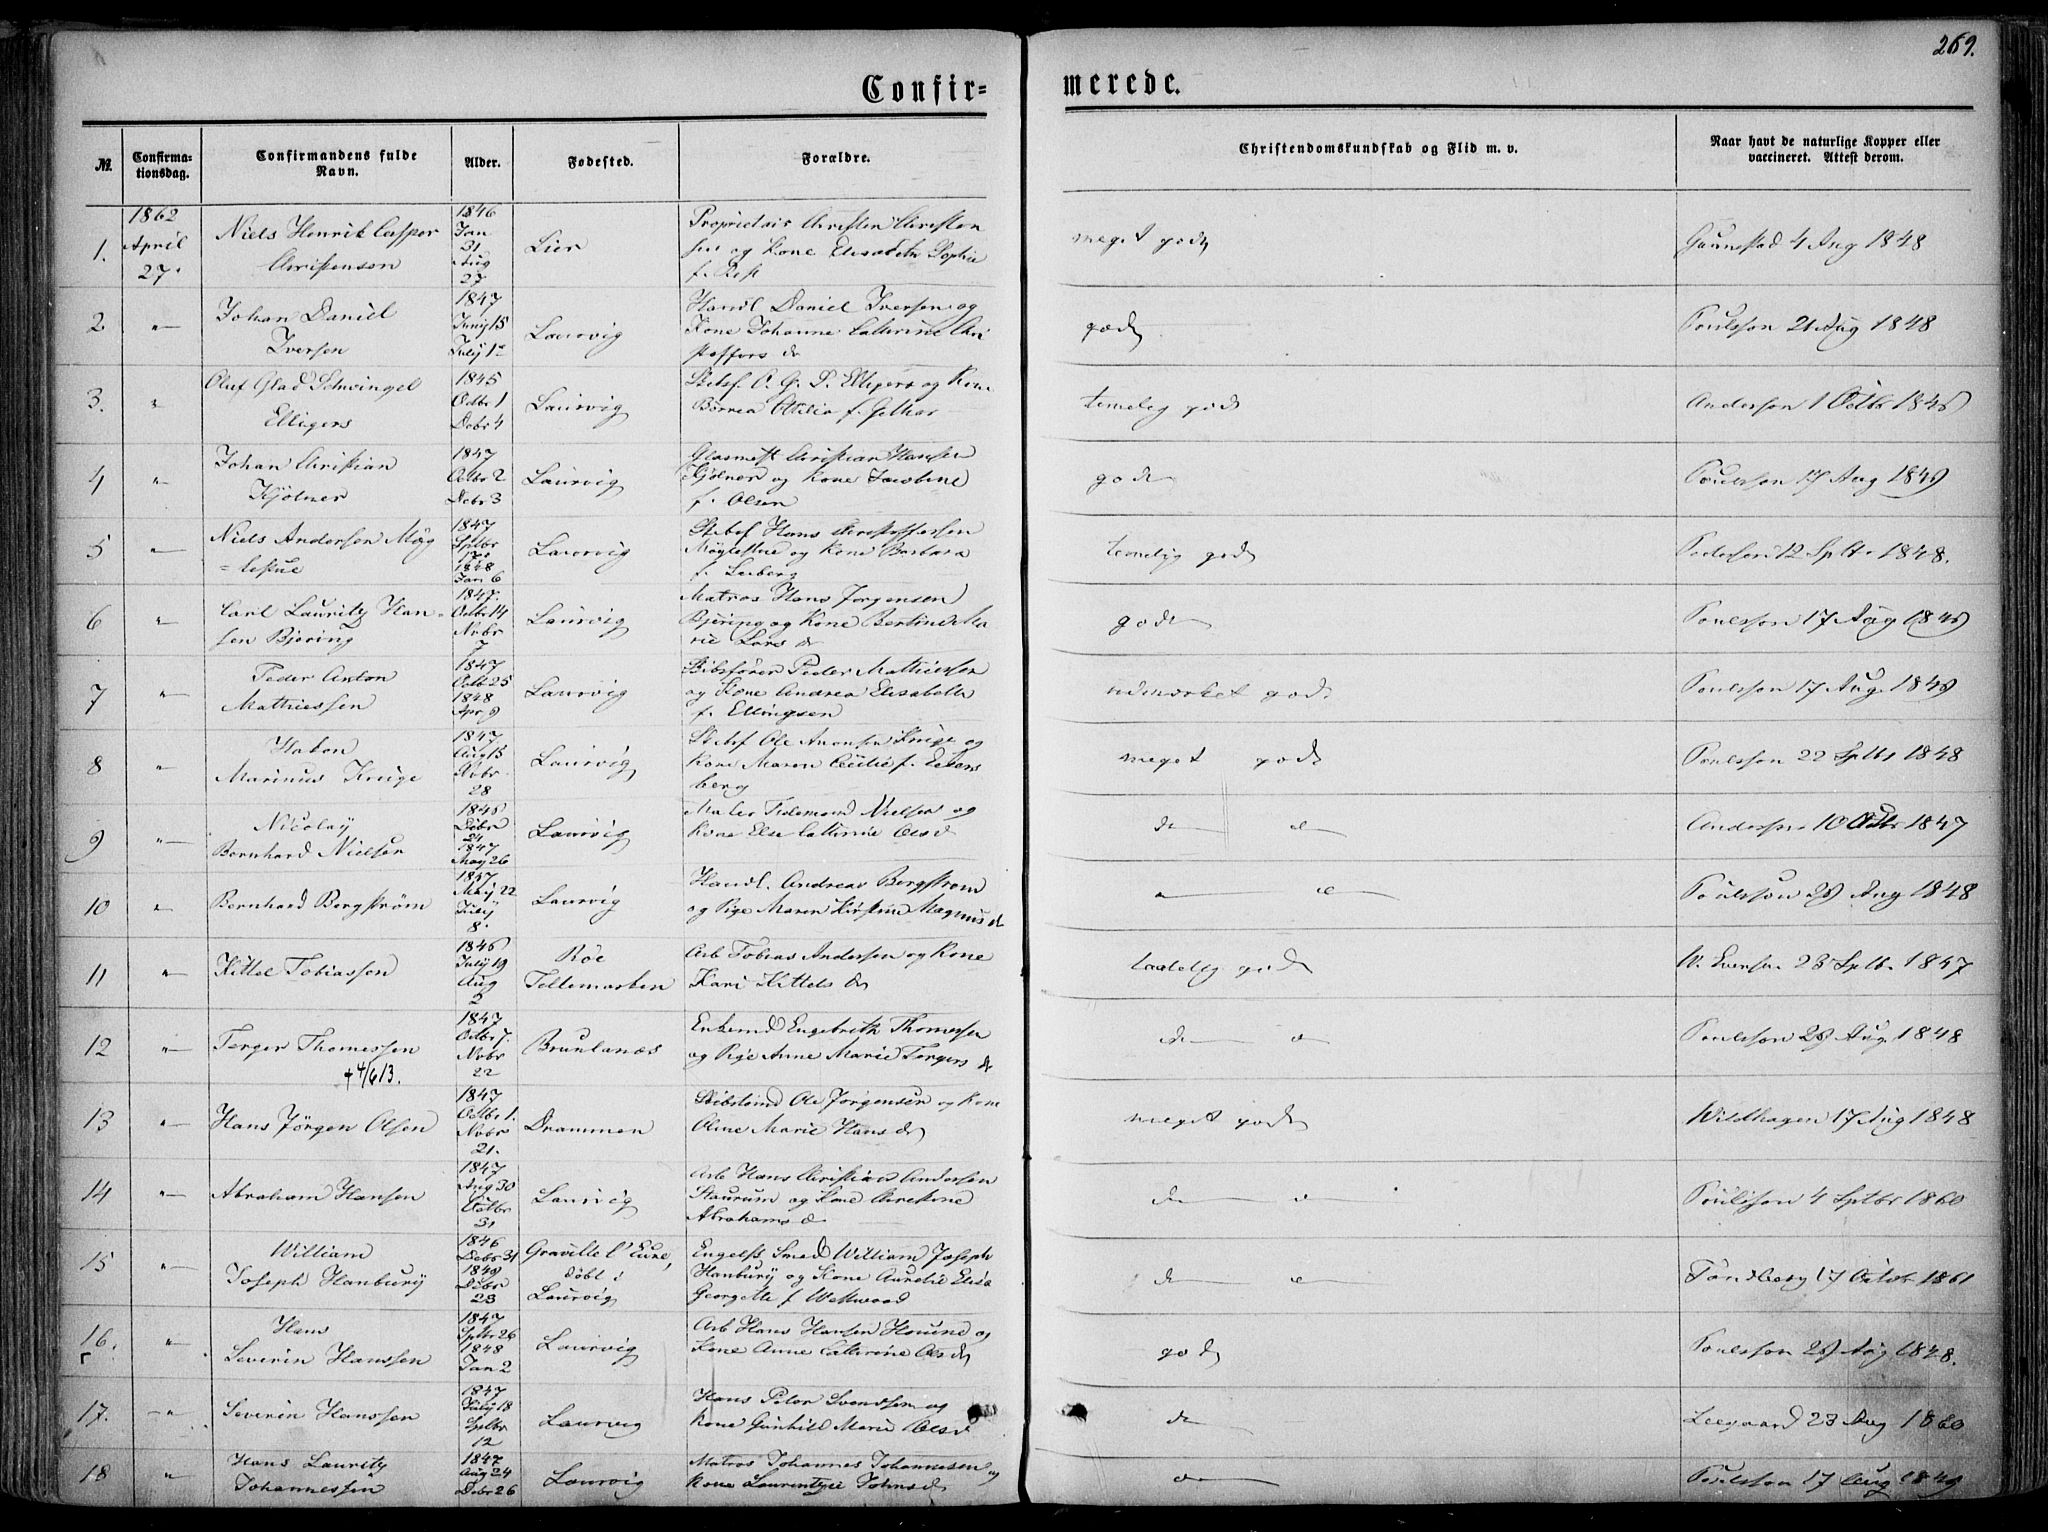 269.
Confir=
merede.
№.
Confirma-
tionsdag.
Confirmandens fulde
Navn.
Alder.
Fødested.
Forældre.
Christendomskundskab og Flid m. v.
Naar havt de naturlige Kopper eller
vaccineret. Attest derom.
1.
1862
April
27.
Niels Henrik Casper
Christensen
1846
Jan
31
Aug
27
Lier
Proprietair Christen Christen
sen og Kone Elisabeth Sophie
meget godt
4 Aug 1848
2
"
Johan Daniel
Iversen
1847
Juny 15
July 1
Laurvig
Handl Daniel Iversen og
Kone Johanne Cathrine Chri
stoffers d
godt
Poulsson 21 Aug 1848
3.
"
Oluf Glad Schwingel
Elligers
1845
Octbr 1
Debr 4
Laurvig
Skibsf. O. G. S. Elligers og Kone
temelig godt
Anderson 1 Octbr
4
"
Johan Christian
Kjølner
1847
Octbr 2
Debr 3
Laurvig
Glasmest Christian Hansen
Kjølner og Kone Jacobine
f. Olsen
godt
Poulsson 17 Aug 1849
5
"
Niels Andersen Møg
=lestue
1847
Sptbr
1848
Jan 6
Laurvig
Skibsf Hans Christoffersen
Møglestue og Kone Barbara
f. Seeberg
temelig godt
Pedersen 12 Sptb. 1848.
6
"
Carl Lauritz Han-
sen Bjering
1847.
Octbr 14
Novbr
7
Laurvig
Matros Hans Jørgensen
Bjering og Kone Bertine Ma
rie Lars d
godt
Poulsson 17 Aug 1849
7
"
Peder Anton
Mathiessen
1847
Octb 25
1848
Apr 9
Laurvig
Skibsfører Peder Mathiessen
og Kone Andrea Elisabeth
f. Ellingsen
udmærket godt
Poulsson 17 Aug. 1849
8
"
Hakon
Marinus Krüge
1847
Aug 15
Nvbr
28
Laurvig
Skibsf Ole Aronsen Krüge og
Kone Maren Cecilie f. Eckers
berg
meget godt
Poulsson 22 Sptbr 1848
9
"
Nicolay
Bernhard Nielsen
1846
Debr
24
1847
May 26
Laurvig
Maler Tidemand Nielsen og
Kone Else Cathrine Ols d
do do
Anderson 10 Octbr 1847
10
"
Bernhard Bergstrøm
1847
May 22
July
8.
Laurvig
Handl. Andreas Bergstrøm
og Pige Maren Kirstine Magnus d
Poulsson 28 Aug 1848
11
"
Kittel Tobiassen
1846
July 19
Aug
2
Røe
Tellemarken
Arb Tobias Andersen og Kone
Kari Kittels d
taalelig godt
23 Sptb. 1847
12
"
Terger Thomessen
† 4/6 13.
1847
Octbr 7.
Nvbr
22
Brunlanæs
Enkemd Engebreth Thomessen
og Pige Anne Marie Tergers d
do do
Poulsson 28 Aug. 1848
13
"
Hans Jørgen Olsen
1847
Octbr 1.
Nvbr
21.
Drammen
Skibstømd Ole Jørgensen og Kone
Oline Marie Hans d
meget godt
Wildhagen 17 Aug 1848
14
"
Abraham Hansen
1847
Aug 30
Octbr
31
Laurvig
Arb Hans Christian Andersen
Staurum og Kone Christine
Abrahams d
do do
Poulsson 4 Sptbr 1860
15
"
William
Joseph Hanbury
1846
Debr 31
Debr
23
Graville l'Eure,
døbt i
Laurvig
Engelsk Smed William Joseph
Hanbury og Kone Aurelie Elisa
Georgette f
do do
17 Octbr 1861
16.
"
Hans
Severin Hanssen
1847
Sptbr 26
1848
Jan 2
Laurvig
Arb Hans Hansen og
Kone Anne Cathrine Ols d
godt
Poulsson 28 Aug 1848.
17.
"
Severin Hanssen
1847
July 18
Sptbr
12
Laurvig
Hans Peter Svendsen og
Kone Gunhild Marie Ols d
do
Leegaard 23 Aug 1860
18
"
Hans Lauritz
Johannessen
1847
Aug 24
Debr 26
Laurvig
Matros Johannes Johannesen og
Kone Laurentzie Johns d
do
Poulsson 17 Aug 1849